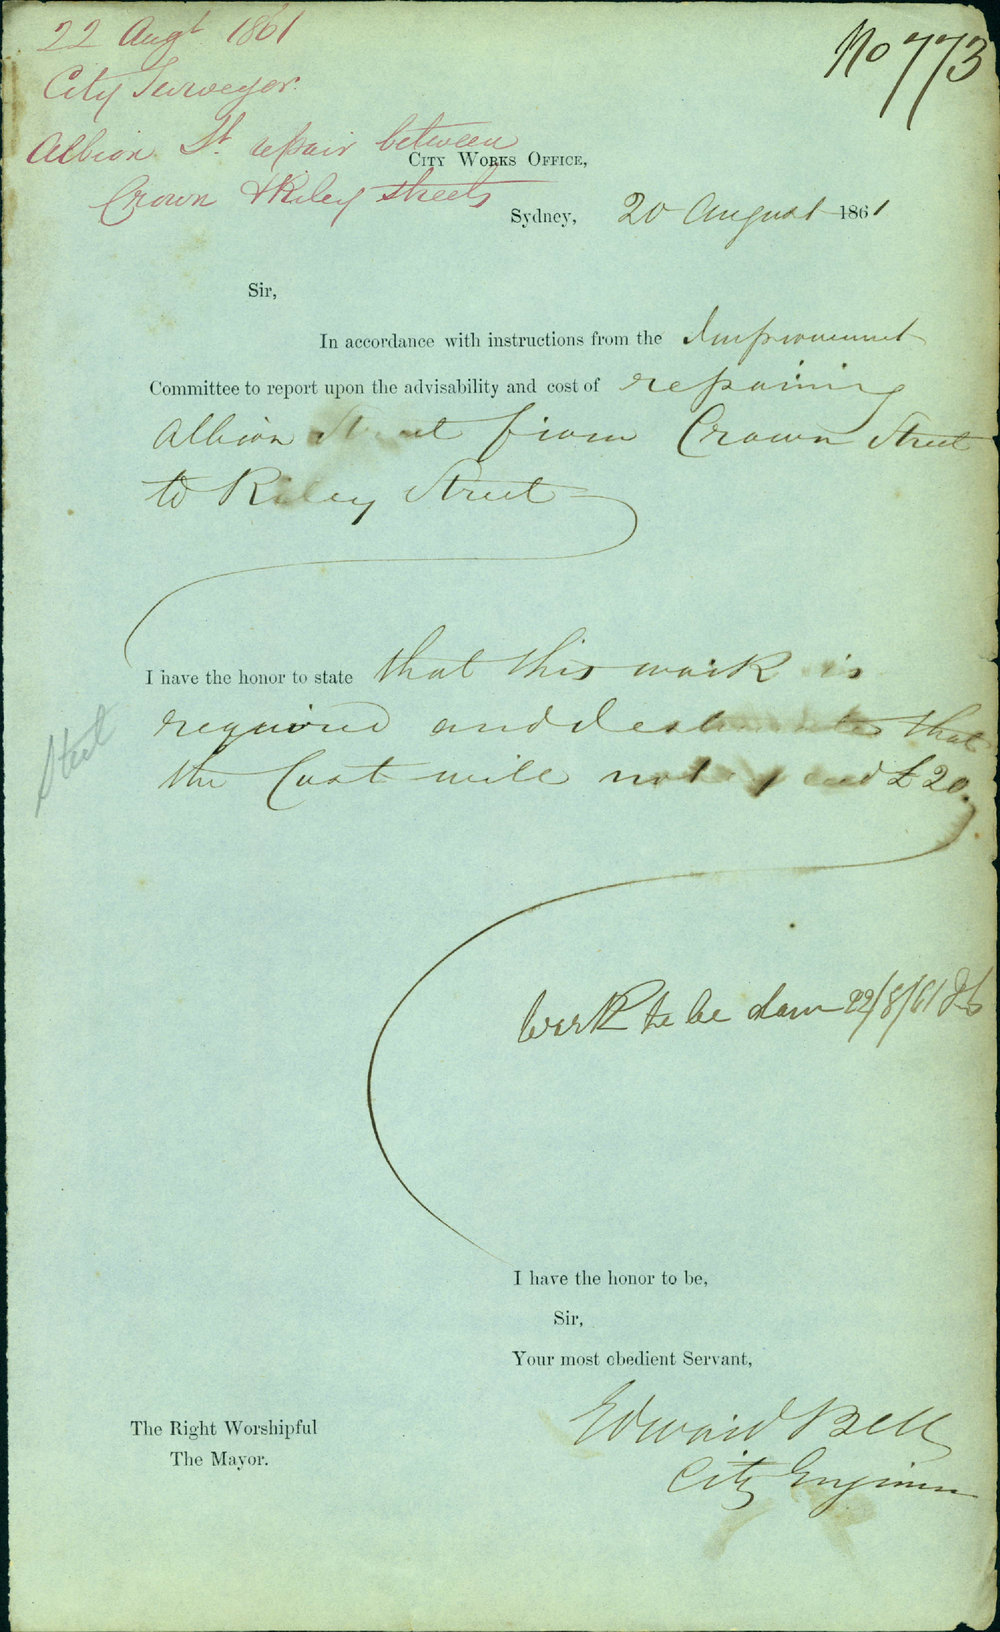 22 Augt 1861
City Surveyor.
Albion St. repair between
Crown & Riley streets
No 773
City Works Office,
Sydney, 20 August 1861
Sir,
In accordance with instructions from the Improvement
Committee to report upon the advisability and cost of repairing
Albion Street from Crown Street
to Riley Street
I have the honor to state that this work is
required and I estimate that
the Cost will not exceed £20.
Street
Work to be done 22/8/61
I have the honor to be,
Sir,
Your most obedient Servant,
Edward Bell
City Engineer
The Right Worshipful
The Mayor.